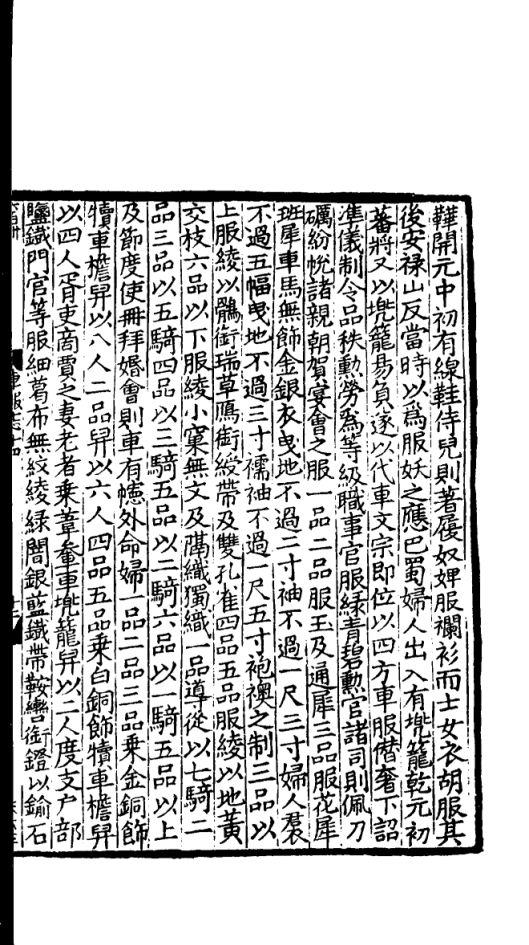 鞾開元中初有線鞋侍兒則著履奴婢服襴衫而士女衣胡服其
後安祿山反當時以爲服妖之應巴蜀婦人出入有兠籠乾元初
蕃將又以兠籠易負遂以代車文宗即位以四方車服僭奢下詔
準儀制令品秩勲勞爲等級職事官服綠青碧勲官諸司則佩刀
礪紛帨諸親朝賀宴會之服一品二品服玉及通犀三品服花犀
班犀車馬無飾金銀衣曵地不過二寸袖不過一尺三寸婦人裙
不過五幅曵地不過三寸襦袖不過一尺五寸袍襖之制三品以
上服綾以鶻銜瑞草鴈銜綬帶及雙孔雀四品五品服綾以地黃
交枝六品以下服綾小窠無文及隔織獨織一品導從以七騎二
品三品以五騎四品以三騎五品以二騎六品以一騎五品以上
及節度使冊拜婚會則車有幰外命婦一品二品三品乘金銅飾
犢車檐舁以八人二品舁以六人四品五品乘白銅飾犢車檐舁
以四人胥吏商賈之妻老者乘葦軬車兠籠舁以二人度支戶部
鹽鐵門官等服細葛布無紋綾綠闇銀藍鐵帶鞍轡銜鐙以鍮石
車服志十四